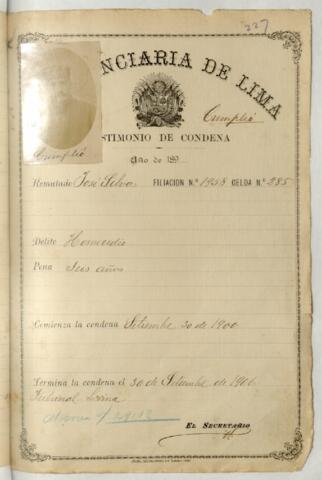 227
NCIARIA DE LIMA
Cumplió
Cumplió
STIMONIO DE CONDENA
Año de 189
Rematado José Silva FILIACION N.º 1958 CELDA N.º 285
Delito Homicidio
Pena Seis años
Comienza la condena Setiembre 30 de 1900
Termina la condena el 30 de Setiembre de 1906
Tribunal
EL SECRETARIO